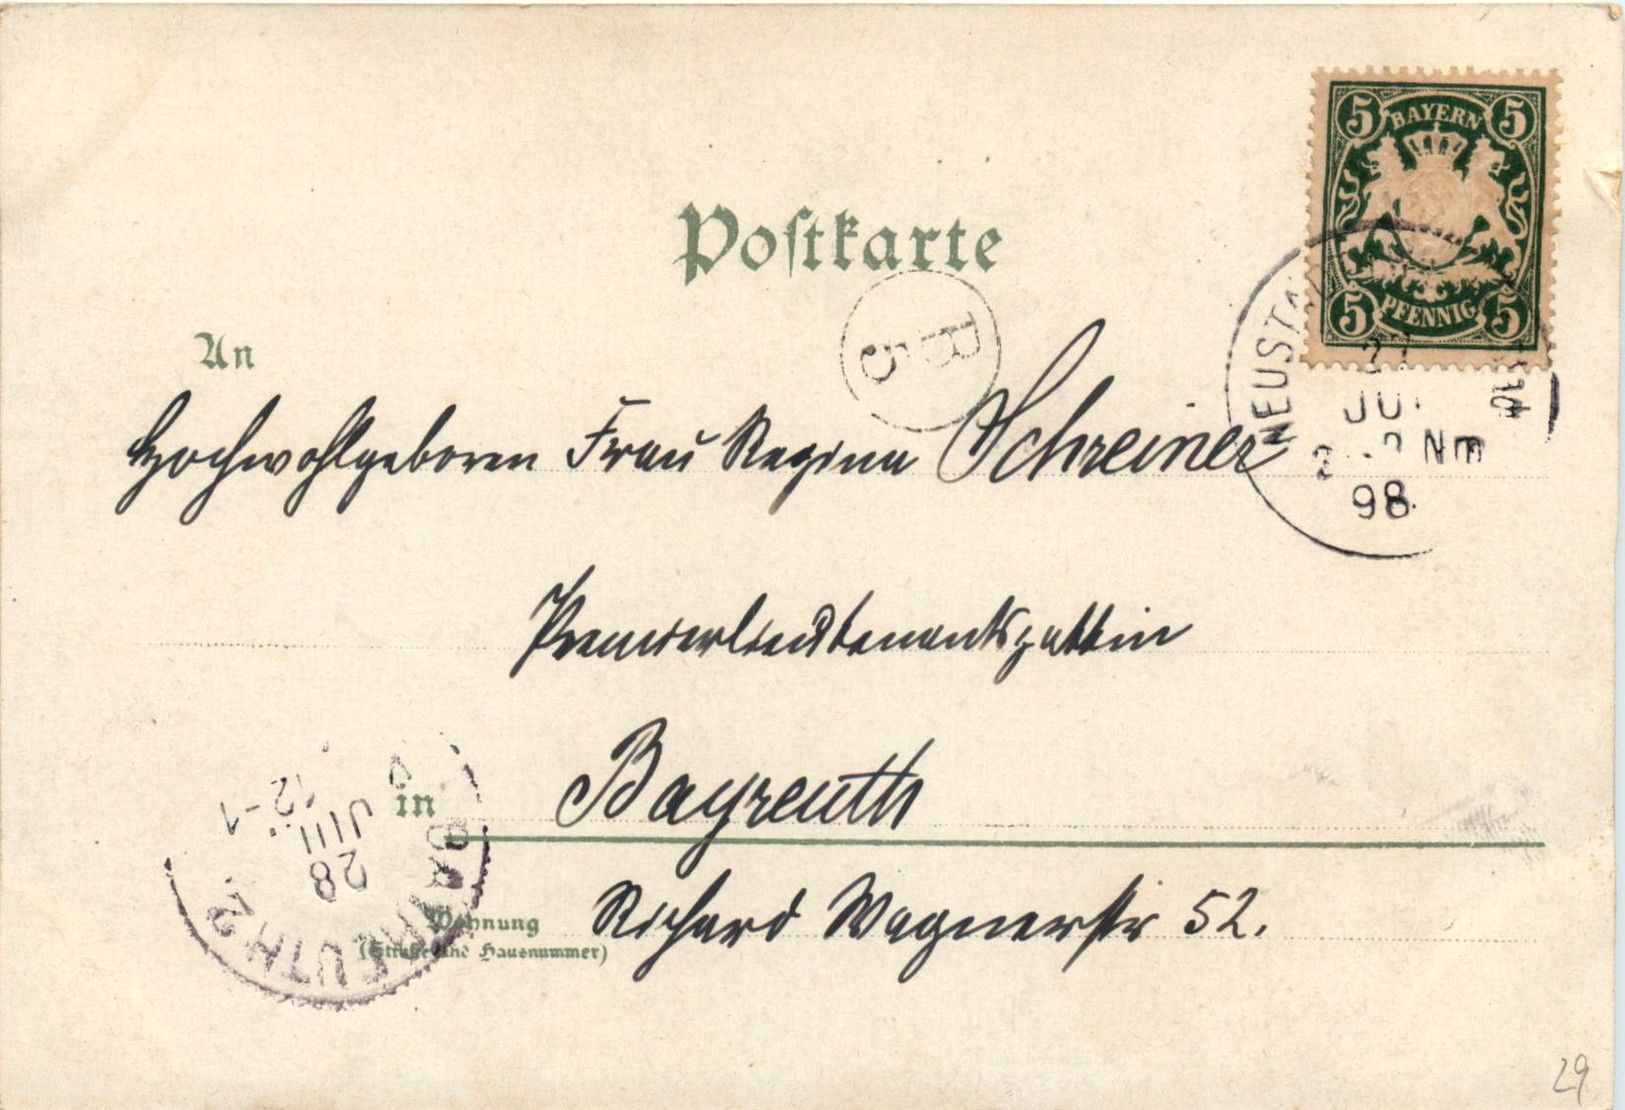 BAYERN
5 5
5 PFENNIG 5
Postkarte
B
5
An
Hochwohlgeboren Frau Regina Schreiner
NEUSTA
27
JUL
2 NM
98
Premierlieutenantsgattin
in Bayreuth
BAYREUTH 2.
28
JUL
12-1
Wohnung Richard Wagnerstr 52.
(Straße und Hausnummer)
29